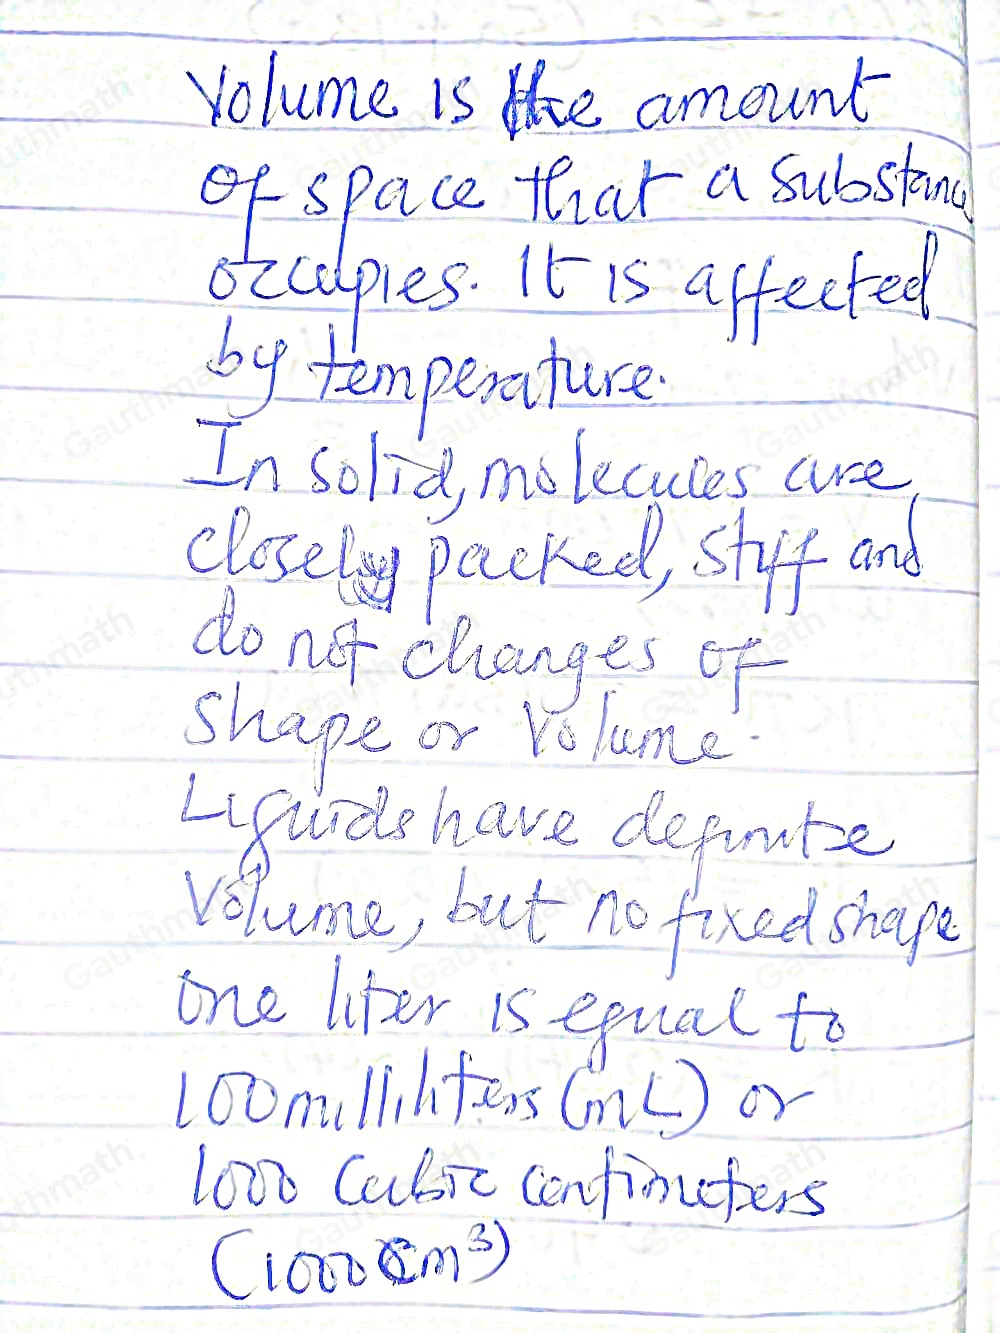 Volume is the amount
of space that a substance
occupies. It is affected
by temperature.
In solid, molecules are
closely packed, stiff and
do not changes of
shape or volume.
Liquids have definite
volume, but no fixed shape.
one liter is equal to
100 milliliters (mL) or
1000 cubic centimeters
(1000 cm³)